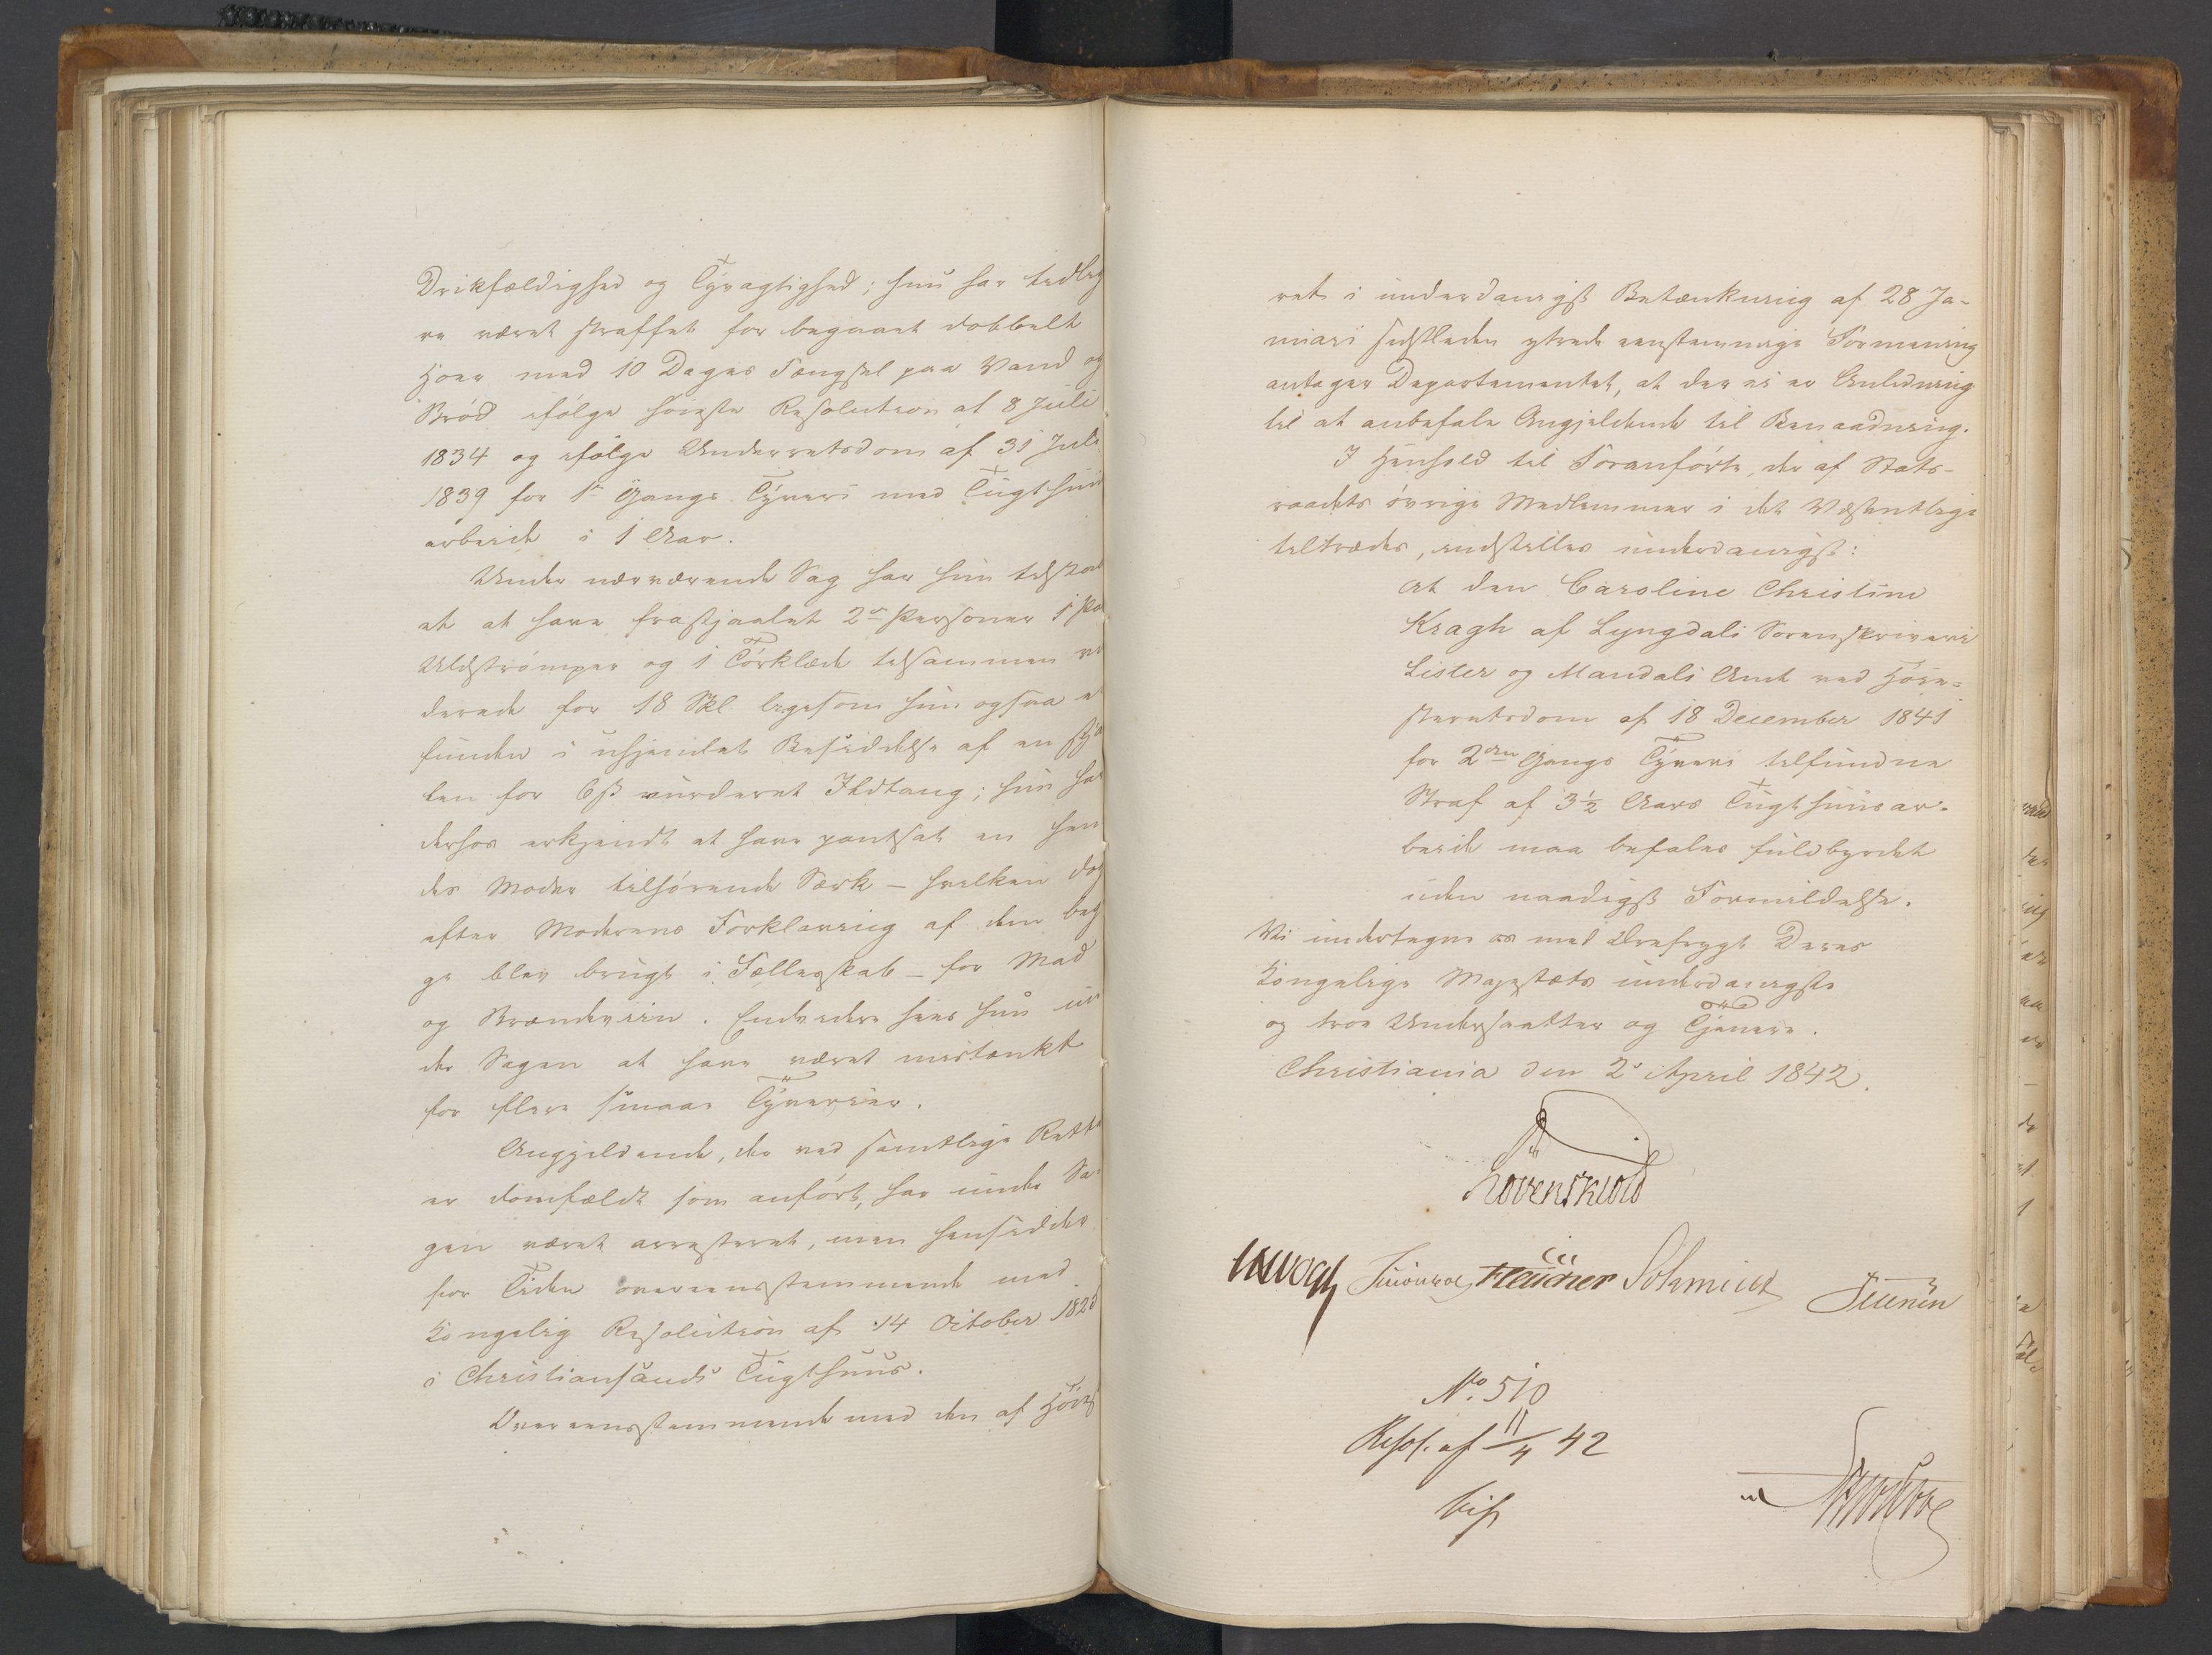 Drikfældighed og Tyvagtighed; hun har tidlig
re været straffet for begaaet dobbelt
Hoer med 10 Dages Fængsel paa Vand og
Brød ifølge høieste Resolution af 8 Juli
1834 og ifølge Underretsdom af 31 Juli
1839 for 1ste Gangs Tyveri med Tugthuus
arbeide i 1 Aar.
Under nærværende Sag har hun tilstaa
et at have frastjaalet 2de Personer 1 Pa
Uldstrømper og 1 Tørklæde tilsammen vu
derede for 18 Skl. ligesom hun ogsaa er
funden i uhjemlet Besiddelse af en stjaa
len for 6 ß vurderet Ildtang; hun har
derhos erkjendt at have pantsat en hen
des Moder tilhørende Særk – hvilken dog
efter Moderens Forklaring af dem beg
ge blev brugt i Fællesskab – for Mad
og Brændeviin. Endvidere sees hun un
der Sagen at have været mistænkt
for flere smaae Tyverier.
Angjeldende, der ved samtlige Rette
er domfældt som anført, har under Sa
gen været arresteret, men hensidder
for Tiden overeensstemmende med
Kongelig Resolution af 14 October 1828
i Christiansands Tugthuus.
Overeensstemmende med den af Høies
ret i underdanigst Betænkning af 28 Ja-
nuari sidstleden ytrede eenstemmige Formening
antager Departementet, at der ei er Anledning
til at anbefale Angjeldende til Benaadning.
I Henhold til Foranførte, der af Stats-
raadets øvrige Medlemmer i det Væsentlige
tiltrædes, indstilles underdanigst:
At den Caroline Christine
Kragh af Lyngdals Sorenskriveri
Lister og Mandals Amt ved Høie-
steretsdom af 18 December 1841
for 2den Gangs Tyveri tilfundne
Straf af 3½ Aars Tugthuusar-
beide maa befales fuldbyrdet
uden naadigst Formildelse.
Vi undertegne os med Ærefrygt Deres
Kongelige Majestæts underdanigste
og troe Undersaatter og Tjenere.
Christiania den 2 April 1842.
Løvenskiold
Vogt Fleischer Schmidt
No. 510
Resol. af 11/4 42